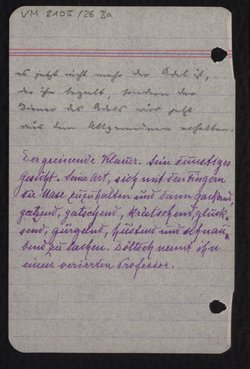 VM 2105/26 Ba
es jetzt nicht mehr der Adel ist,
der ihn bezahlt, sondern der
Diener des Adels wird jetzt
mit dem Allgemeinen erhalten.
Der greinende Klauer. Sein dunstiges
Gesicht. Seine Art, sich mit den Fingern
die Nase zuzuhalten und dann gackend,
gatzend, gatschend, krietschend, gluck-
send, gurgelnd, hustend und schnau-
bend zu lachen. Döltsch nennt ihn
einen verirrten Professor.